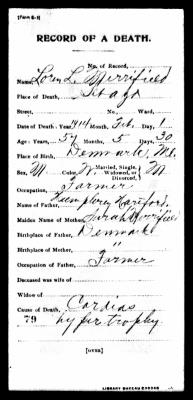 [Form B-1]
RECORD OF A DEATH.
No. of Record,
Name, Loren L. Merrifield
Place of Death,
Street, No. Ward,
Date of Death: Year, 1914 Month, Feb. Day, 1
Age: Years, 54 Months, 5 Days, 30
Place of Birth, Denmark, Me.
Sex, M Color, W. Married, Single, Widowed, or Divorced, M
Occupation, Farmer
Name of Father,
Maiden Name of Mother, Sarah Merrifield
Birthplace of Father, Denmark
Birthplace of Mother, "
Occupation of Father, Farmer
Deceased was wife of
Widow of
Cause of Death, Cardiac
79 hypertrophy.
[OVER]
LIBRARY BUREAU